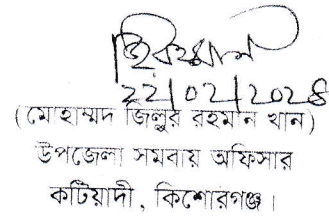 22/02/2028
(মোহাম্মদ জিল্লুর রহমান খান)
উপজেলা সমবায় অফিসার
কটিয়াদী, কিশোরগঞ্জ।